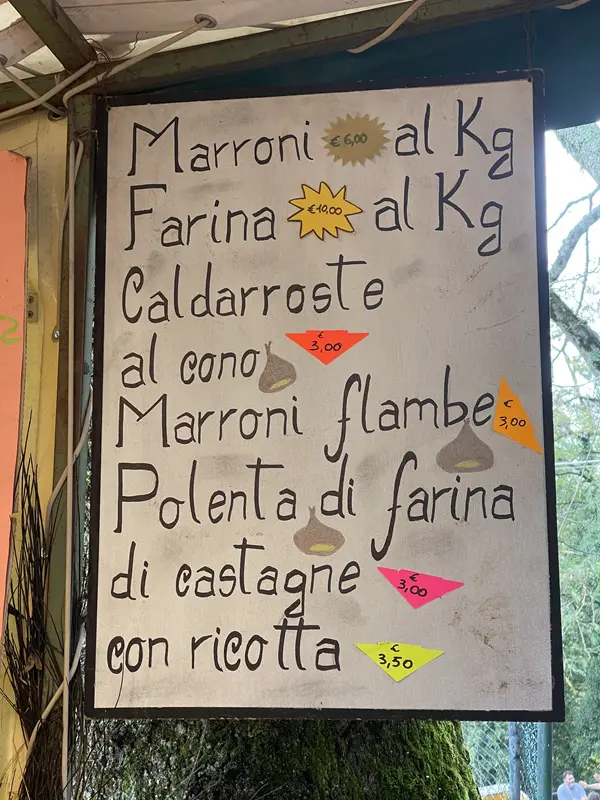 Marroni € 6,00 al Kg
Farina € 10,00 al Kg
Caldarroste
al cono € 3,00
Marroni flambe € 3,00
Polenta di farina
di castagne € 3,00
con ricotta € 3,50